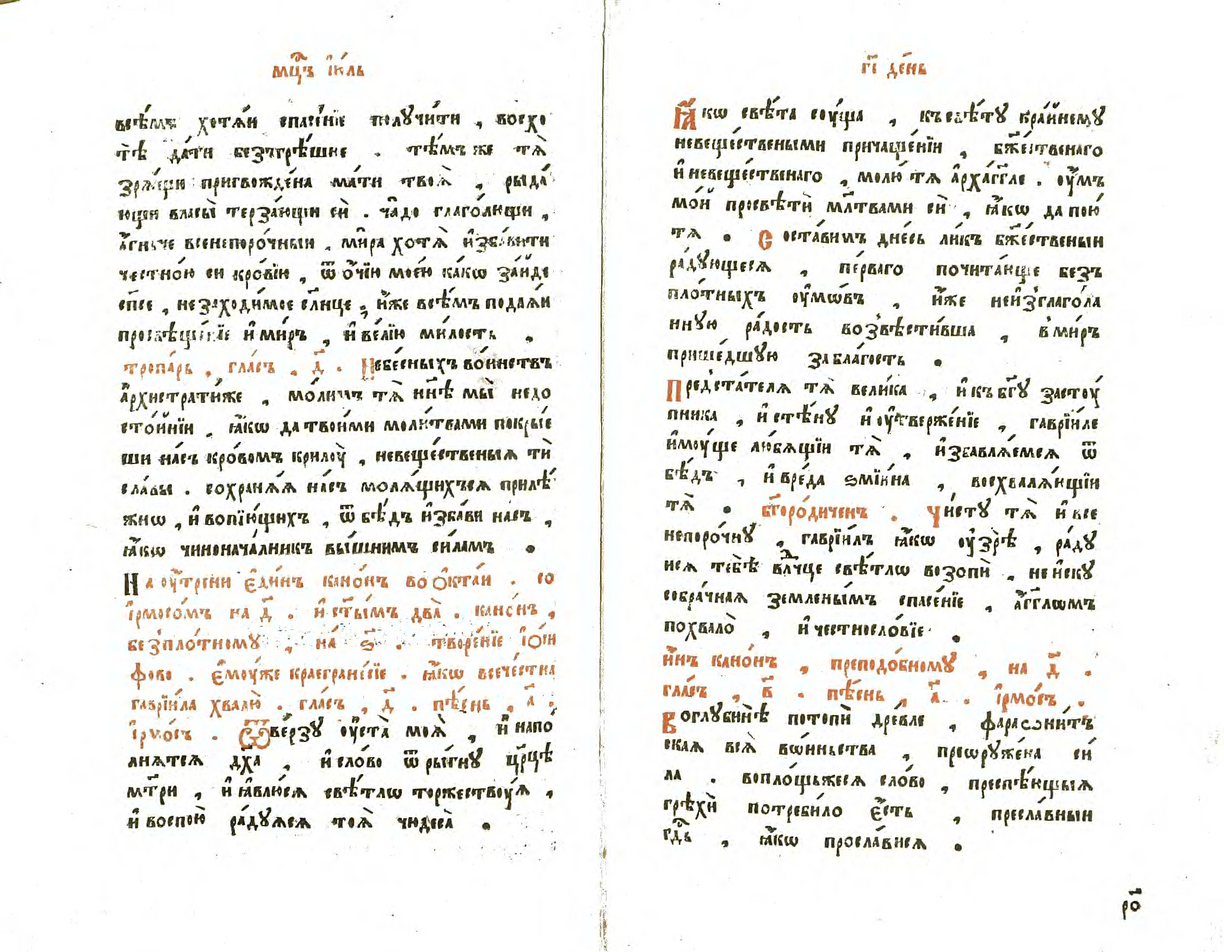 мцⷭ҇ъ і҆ю́ль
всѣ́мъ хотѧ́й спасе́нїе полꙋчи́ти , восхо
тѣ̀ да́ти безъгрѣ́шне . тѣ́мъ же тѧ̀
зрѧ́щи пригвожде́на ма́ти твоѧ̀ , рыда́
ющи власы̀ терза́ющи сѝ . ча́до глаго́лющи ,
а҆́гньче всенепоро́чныи , ми́ра хотѧ̀ и҆зба́вити
честно́ю си кро́вїю , ѿ ѻ҆́чїю моє́ю ка́кѡ за́иде
спⷭ҇е , незаходи́мое сл҃нце , и҆́же всѣ́мъ пода́ѧи
просвѣще́нїе и҆ ми́ръ , и҆ ве́лїю ми́лость ,
тропа́рь , гла́съ , д҃ . Небе́сныхъ во́инствъ
а҆рхистрати́же , мо́лимъ тѧ̀ нн҃ѣ мы̀ недо
сто́йнїи , ꙗ҆́кѡ да твои́ми моли́твами покры́е
ши на́съ кро́вомъ крилꙋ̀ , невеще́ственыѧ тѝ
сла́вы . сохранѧ́ѧ на́съ молѧ́щихсѧ прилѣ́
жнѡ , и҆ вопїю́щихъ , ѿ бѣ́дъ и҆зба́ви на́съ ,
ꙗ҆́кѡ чинонача́лникъ вы́шнимъ си́ламъ .
На ᲂу҆́трени є҆ди́нъ кано́нъ во ѻ҆кта́и . со
і҆рмосо́мъ на д҃ . и҆ ст҃ы́мъ два̀ . кано́нъ ,
безпло́тномꙋ , на ѕ҃ . творе́нїе і҆ѡ́си
фово . є҆мꙋ́же краегране́сїе . ꙗ҆́кѡ всече́стна
гаврїи́ла хвалю̀ . гла́съ , д҃ . пѣ́снь , а҃ .
і҆рмо́съ . Ѿве́рзꙋ ᲂу҆ста̀ моѧ̀ , и҆ напо́
лнѧтсѧ дх҃а , и҆ сло́во ѿры́гнꙋ цр҃цѣ
мт҃ри , и҆ ꙗ҆влю́сѧ свѣ́тлѡ торжествꙋ́ѧ ,
и҆ воспою̀ ра́дꙋѧсѧ тоѧ̀ чюдеса̀ .
гі҃ де́нь
Ꙗ҆́кѡ свѣ́та сꙋ́ща , къ свѣ́тꙋ кра́йнемꙋ
невеще́ствеными причаще́нїи , бж҃е́ственаго
и҆ невеще́ственаго , молю́ тѧ а҆рха́гг҃ле . ᲂу҆́мъ
мо́й просвѣтѝ мл҃твами сѝ , ꙗ҆́кѡ да пою̀
тѧ̀ . Соста́вимъ дне́сь ли́къ бж҃е́ственыи
ра́дꙋющесѧ , пе́рваго почита́юще без
пло́тныхъ ᲂу҆мѡ́въ , и҆́же неизглаго́ла
ннꙋю ра́дость возвѣсти́вша , в ми́ръ
прише́дшꙋю за бла́гость .
Предста́телѧ тѧ̀ вели́ка , и҆ къ бг҃ꙋ застꙋ́
пника , и҆ стѣ́нꙋ и҆ ᲂу҆тверже́нїе , гаврїи́ле
и҆мꙋ́ще лю́бѧщїи тѧ̀ , и҆збавлѧ́емсѧ ѿ
бѣ́дъ , и҆ вре́да ѕмїи́на , восхвалѧ́ющїи
тѧ̀ . бг҃оро́диченъ . Чи́стꙋ тѧ̀ и҆ все
непоро́чнꙋ , гаврїи́лъ ꙗ҆́кѡ ᲂу҆зрѣ̀ , ра́дꙋ
исѧ тебѣ̀ влⷣчце свѣ́тлѡ возопѝ , неискꙋ
собра́чнаѧ земленымъ спасе́нїе , а҆́гг҃лѡмъ
похвало̀ , и҆ честносло́вїе .
и҆́нъ кано́нъ , преподо́бномꙋ , на д҃ .
гла́съ , в҃ . пѣ́снь , а҃ . і҆рмо́съ .
Во глꙋбинѣ̀ потопѝ дре́вле , фараѡни́тъ
скаѧ всѧ̀ во́иньства , преѡрꙋже́на си́
ла . вопло́щьжесѧ сло́во , преспѣ́ющыѧ
грѣхѝ потреби́ло є҆́сть , пресла́вныи
гдⷭ҇ь , ꙗ҆́кѡ просла́висѧ .
ро҃